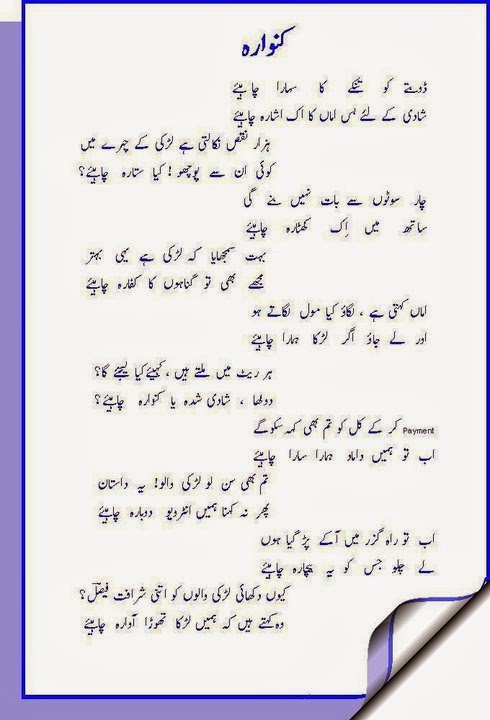 کنوارہ
ڈوبتے کو تنکے کا سہارا چاہیئے
شادی کے لئے بس اماں کا اک اشارہ چاہیئے
ہزار نقص نکالتی ہے لڑکی کے چہرے میں
کوئی ان سے پوچھو ! کیا ستارہ چاہیئے؟
چار سوٹوں سے بات نہیں بنے گی
ساتھ میں اِک کھٹارہ چاہیئے
بہت سمجھایا کہ لڑکی ہے یہی بہتر
مجھے بھی تو گناہوں کا کفارہ چاہیئے
اماں کہتی ہے ، لگاؤ کیا مول لگاتے ہو
اور لے جاؤ اگر لڑکا ہمارا چاہیئے
ہر ریٹ میں ملتے ہیں ، کہیئے کیا لیجئے گا؟
دولھا ، شادی شدہ یا کنوارہ چاہیئے؟
Payment کر کے کل کو تم بھی کہہ سکو گے
اب تو ہمیں داماد ہمارا سارا چاہیئے
تم بھی سن لو لڑکی والو! یہ داستان
پھر نہ کہنا ہمیں انٹرویو دوبارہ چاہیئے
اب تو راہ گزر میں آکے پڑ گیا ہوں
لے چلو جس کو یہ بیچارہ چاہیئے
کیوں دکھائی لڑکی والوں کو اتنی شرافت فیصلؔ؟
وہ کہتے ہیں کہ ہمیں لڑکا تھوڑا آوارہ چاہیئے